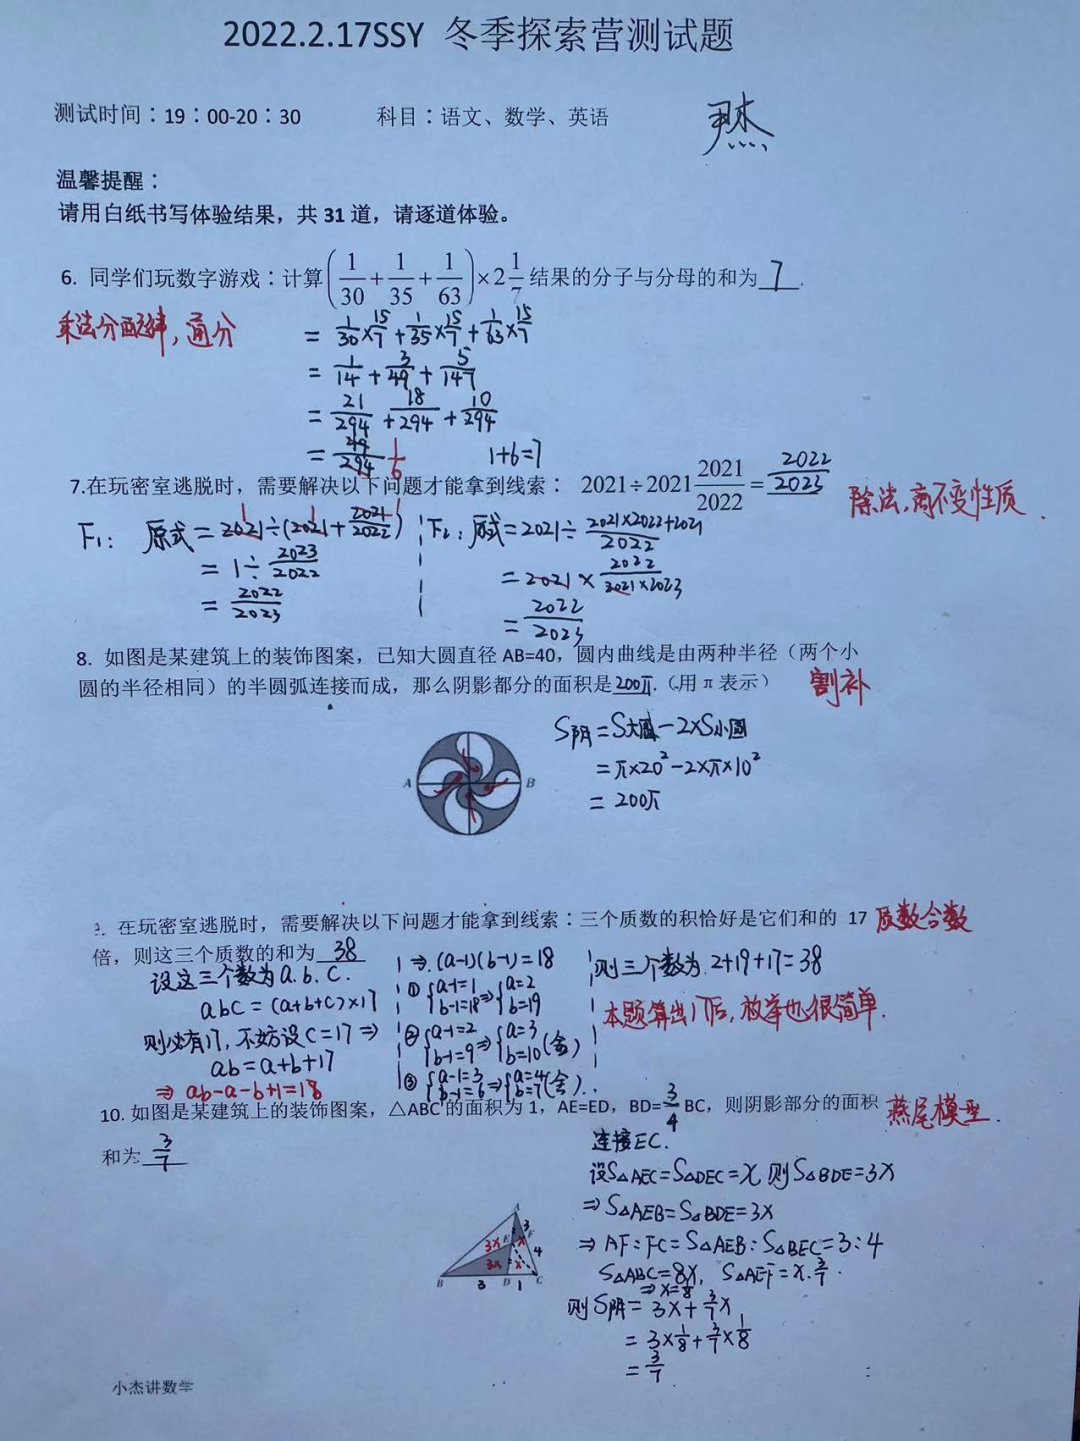 2022.2.17SSY 冬季探索营测试题
测试时间：19：00-20：30 科目：语文、数学、英语
温馨提醒：
请用白纸书写体验结果，共 31 道，请逐道体验。
6. 同学们玩数字游戏：计算(1/30+1/35+1/63)×2 1/7 结果的分子与分母的和为 7 .
乘法分配律，通分
= 1/30×15/7+1/35×15/7+1/63×15/7
= 1/14+3/49+5/147
= 21/294+18/294+10/294
= 49/294 1/6 1+6=7
7.在玩密室逃脱时，需要解决以下问题才能拿到线索： 2021÷2021 2021/2022 = 2022/2023
除法，商不变性质.
F1: 原式=2021÷(2021+2021/2022)
= 1÷2023/2022
= 2022/2023
F2: 原式=2021÷(2021×2022+2021)/2022
= 2021×2022/(2021×2023)
= 2022/2023
8. 如图是某建筑上的装饰图案，已知大圆直径 AB=40，圆内曲线是由两种半径（两个小
圆的半径相同）的半圆弧连接而成，那么阴影都分的面积是 200π.（用 π 表示）
割补
A B
S阴=S大圆-2×S小圆
=π×20²-2×π×10²
= 200π
9. 在玩密室逃脱时，需要解决以下问题才能拿到线索：三个质数的积恰好是它们和的 17
质数合数
倍，则这三个质数的和为 38
设这三个数为a.b.c.
abc=(a+b+c)×17
则必有17，不妨设c=17⇒
ab=a+b+17
⇒ ab-a-b+1=18
⇒(a-1)(b-1)=18
① {a-1=1 b-1=18 ⇒ {a=2 b=19
② {a-1=2 b-1=9 ⇒ {a=3 b=10(舍)
③ {a-1=3 b-1=6 ⇒ {a=4 b=7(舍).
则三个数为.2+19+17=38
本题算出17后，枚举也很简单.
10. 如图是某建筑上的装饰图案，△ABC 的面积为 1，AE=ED，BD=3/4 BC，则阴影部分的面积
燕尾模型.
和为 3/7
A F E B D C
3 4 3x x 3x x 3 1
连接EC.
设S△AEC=S△DEC=x,则S△BDE=3x
⇒S△AEB=S△BDE=3x
⇒ AF:FC=S△AEB:S△BEC=3:4
S△ABC=8x, S△AEF=x.3/7.
⇒x=1/8
则S阴=3x+3/7x
= 3×1/8+3/7×1/8
= 3/7
小杰讲数学